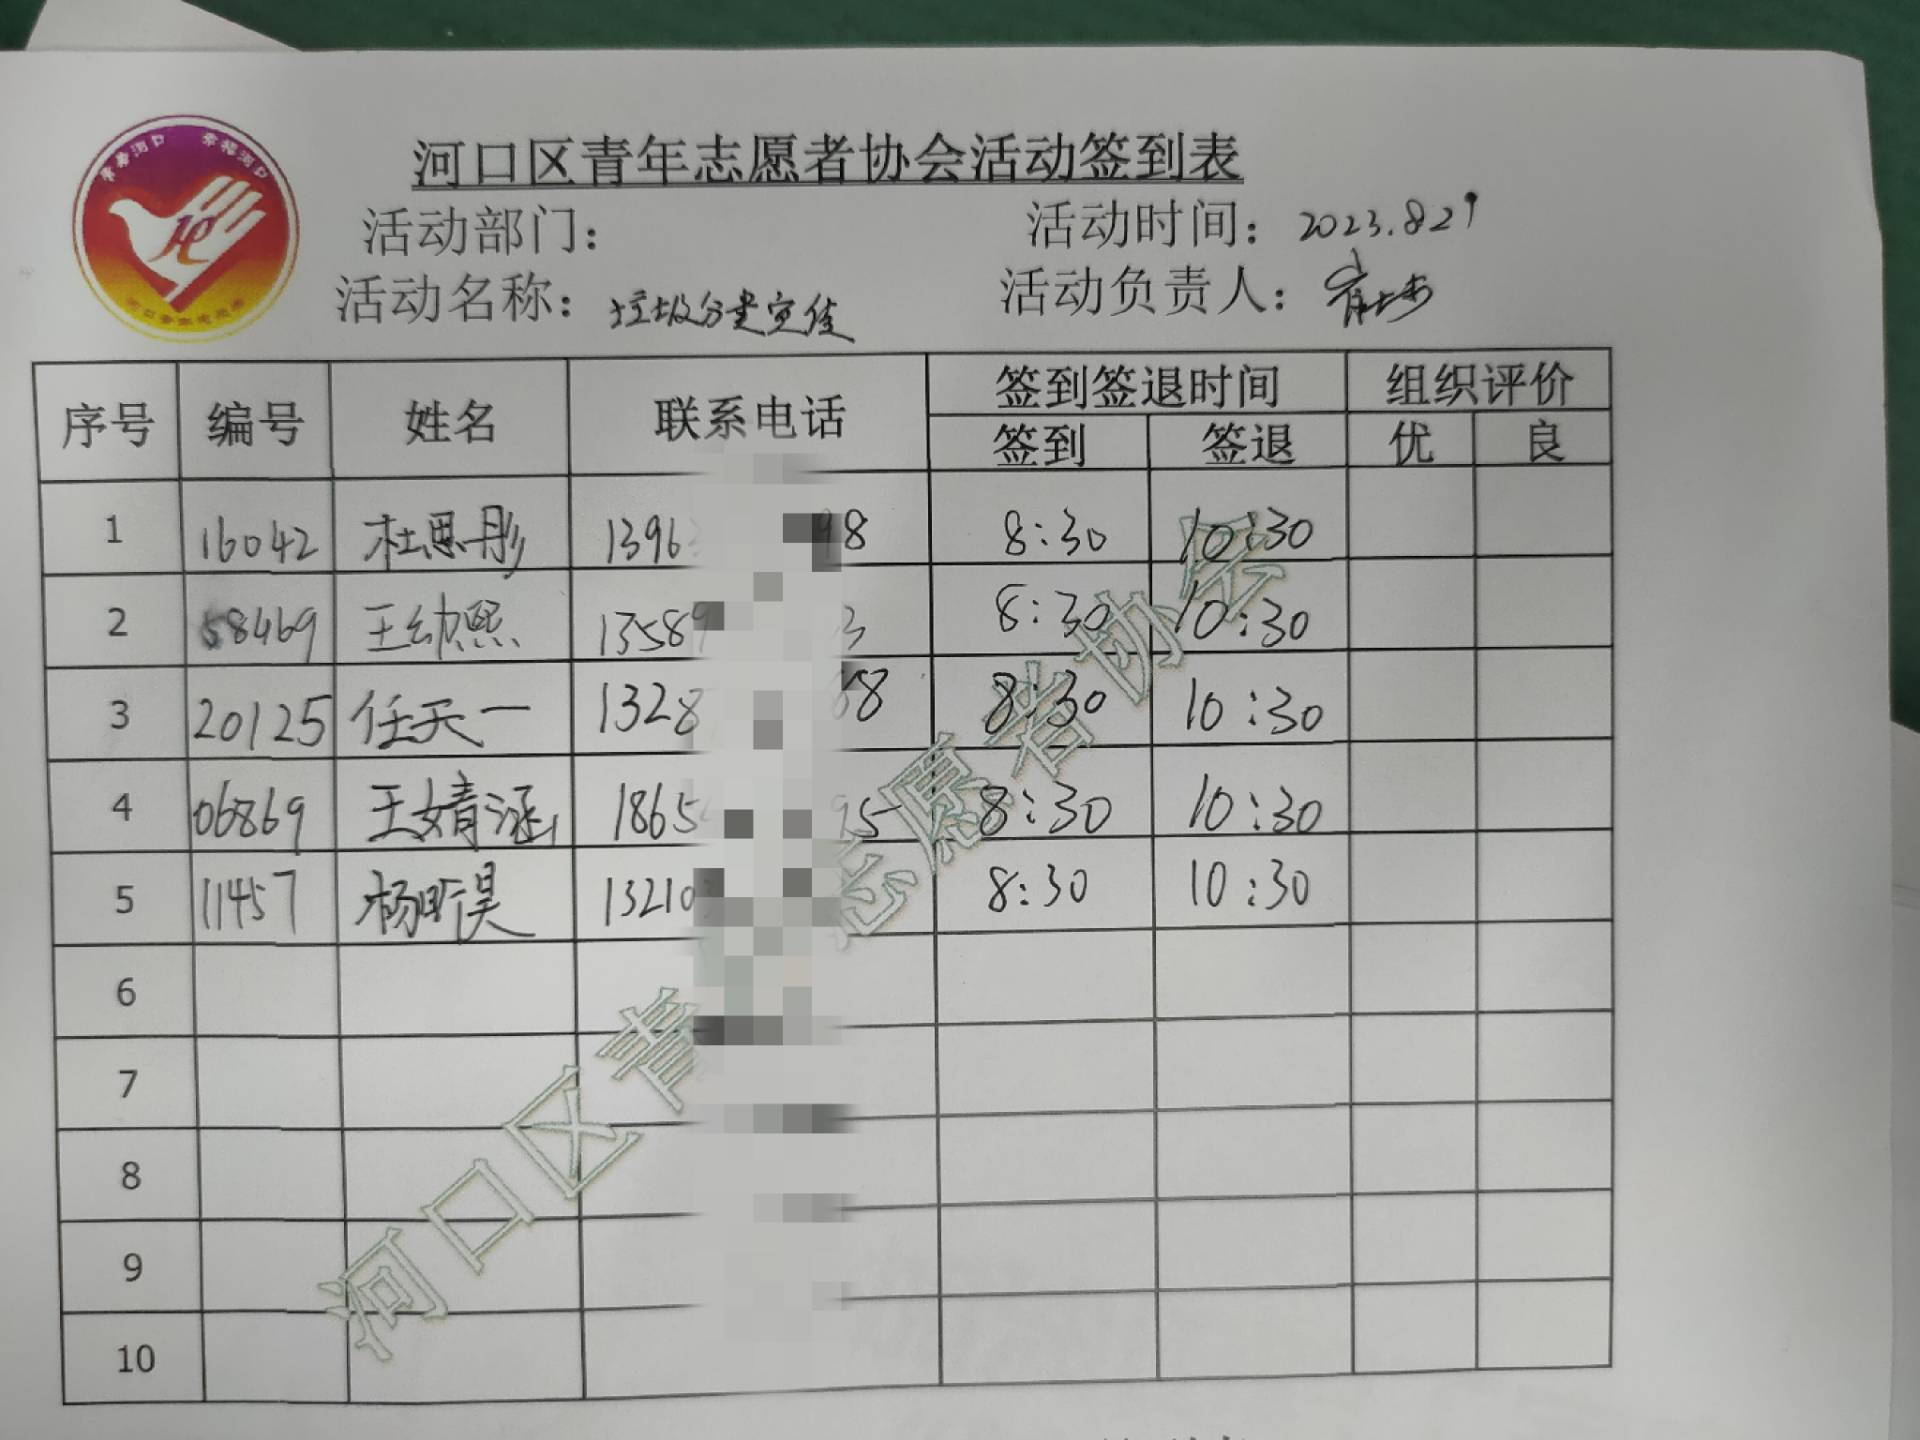 青春河口 幸福河口
河口区青年志愿者协会活动签到表
活动部门：
活动时间：2023.8.29
活动名称：垃圾分类宣传
活动负责人：
序号 编号 姓名 联系电话 签到签退时间 组织评价
签到 签退 优 良
1 16042 杜思彤 1396 98 8:30 10:30
2 58469 王幼熙 13589 3 8:30 10:30
3 20125 任天一 1328 68 8:30 10:30
4 06869 王婧涵 1865 95 8:30 10:30
5 11457 杨昕昊 13210 8:30 10:30
6
7
8
9
10
河口区青 志愿者协会